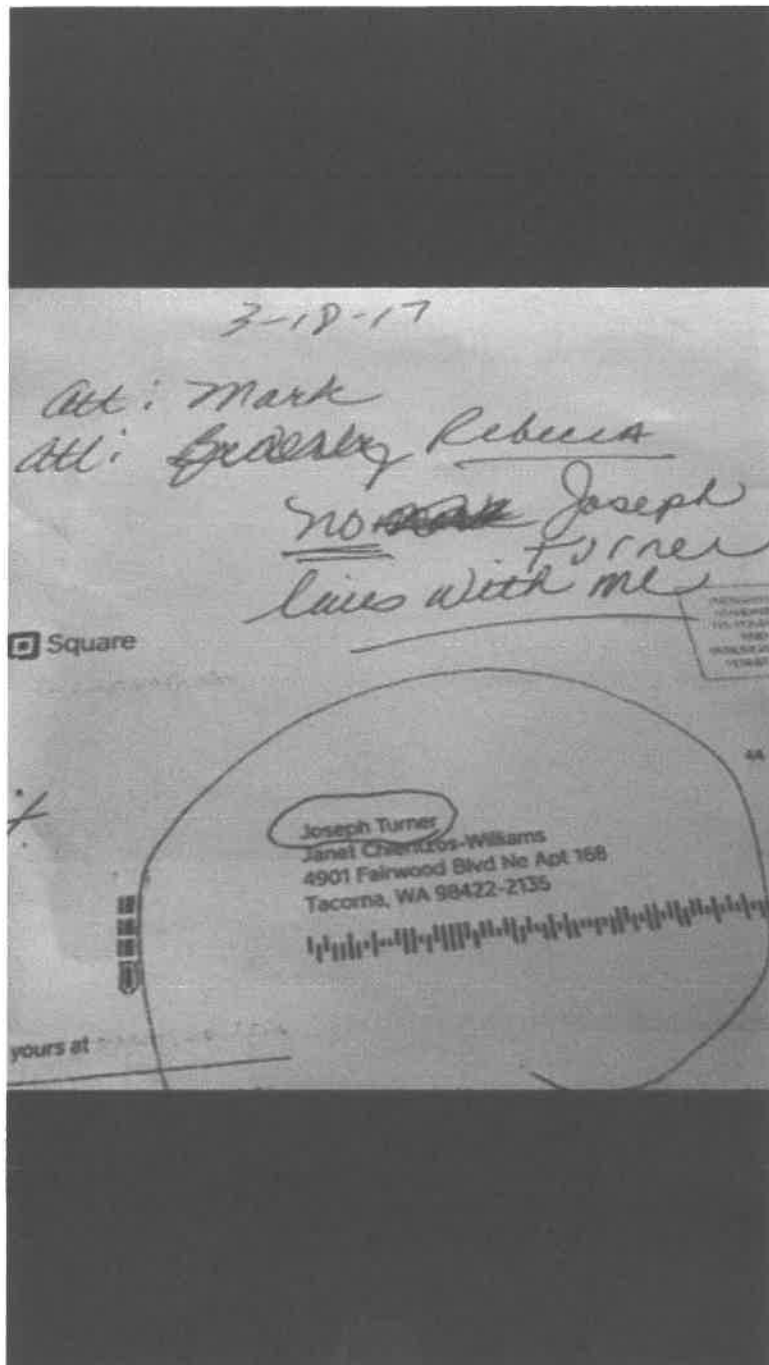 3-18-17
Att: Mark
Att: Rebecca
no Joseph
turner
lives with me
Square
4A
Joseph Turner
Janet Chientzos-Williams
4901 Fairwood Blvd Ne Apt 168
Tacoma, WA 98422-2135
yours at